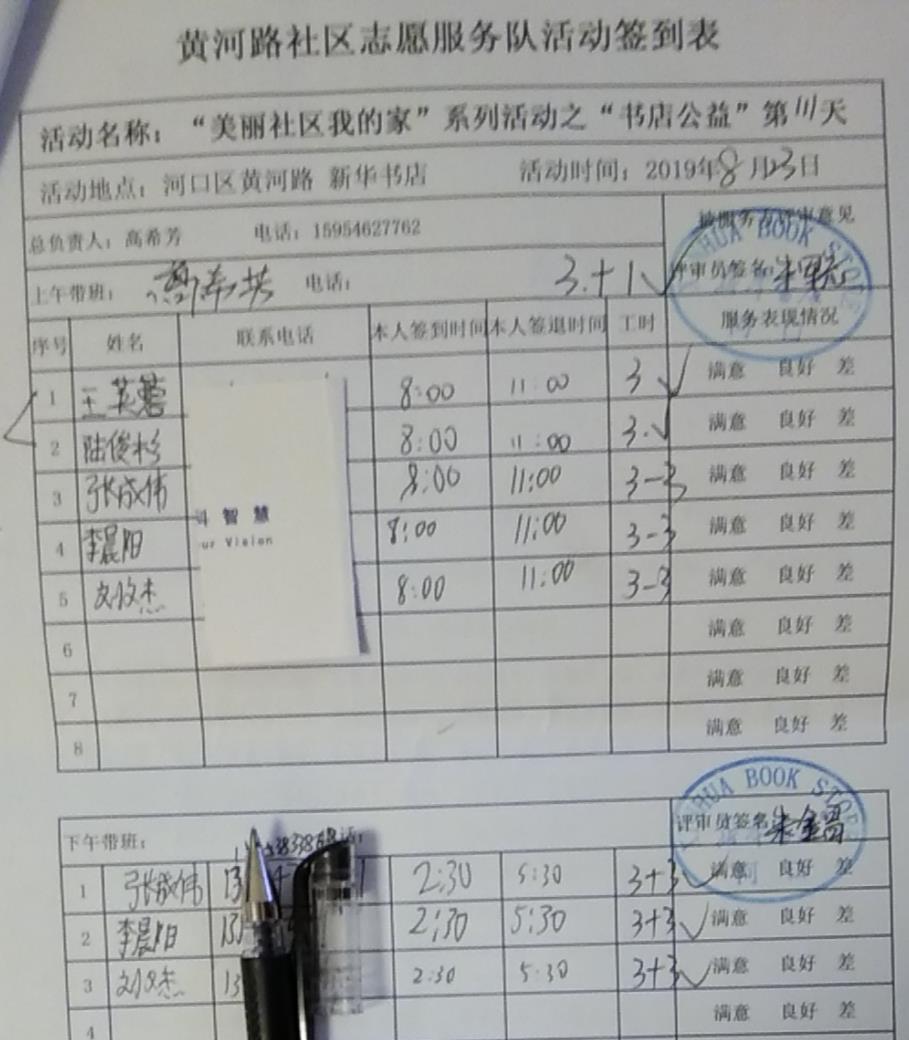 黄河路社区志愿服务队活动签到表
活动名称：“美丽社区我的家”系列活动之“书店公益”第111天
活动地点：河口区黄河路 新华书店 活动时间：2019年8月23日
总负责人：高希芳 电话：15954627762 被服务方评审意见
上午带班： 电话： 3.+1 评审员签名：
HUA BOOK STORE
序号 姓名 联系电话 本人签到时间 本人签退时间 工时 服务表现情况
1 王英 8:00 11:00 3 满意 良好 差
2 陆俊杉 8:00 11:00 3. 满意 良好 差
3 张成伟 8:00 11:00 3-3 满意 良好 差
4 李晨阳 8:00 11:00 3-3 满意 良好 差
5 8:00 11:00 3-3 满意 良好 差
6 满意 良好 差
7 满意 良好 差
8 满意 良好 差
智慧
ur Vision
HUA BOOK STORE
下午带班： 评审员签名：
1 张成伟 13 2:30 5:30 3+3 满意 良好 差
2 李晨阳 2:30 5:30 3+3 满意 良好 差
3 13 2:30 5:30 3+3 满意 良好 差
4 满意 良好 差